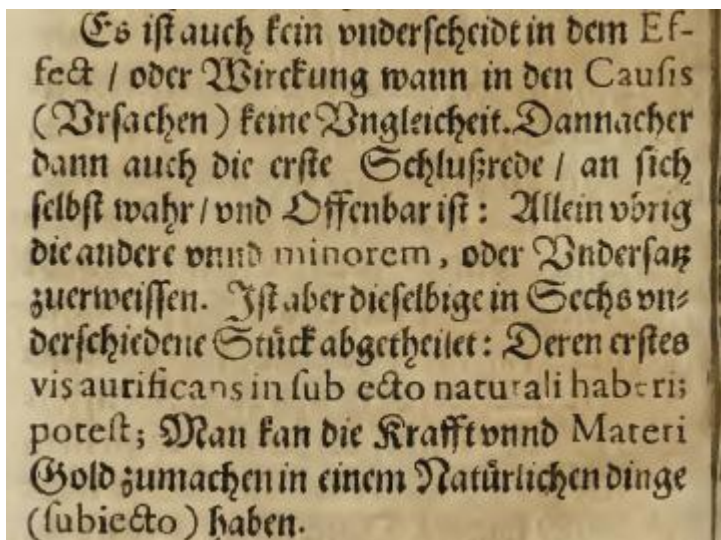 Es iſt auch kein vnderſcheidt in dem Ef-
fect / oder Wirckung wann in den Cauſis
(Vrſachen) keine Vngleicheit. Dannacher
dann auch die erſte Schlußrede / an ſich
ſelbſt wahr / vnd Offenbar iſt: Allein vbrig
die andere vnnd minorem, oder Vnderſatz
zuerweiſſen. Iſt aber dieſelbige in Sechs vn⸗
derſchiedene Stück abgetheilet: Deren erſtes
vis aurificans in ſub ecto naturali haberi;
poteſt; Man kan die Krafft vnnd Materi
Gold zumachen in einem Natürlichen dinge
(ſubiecto) haben.